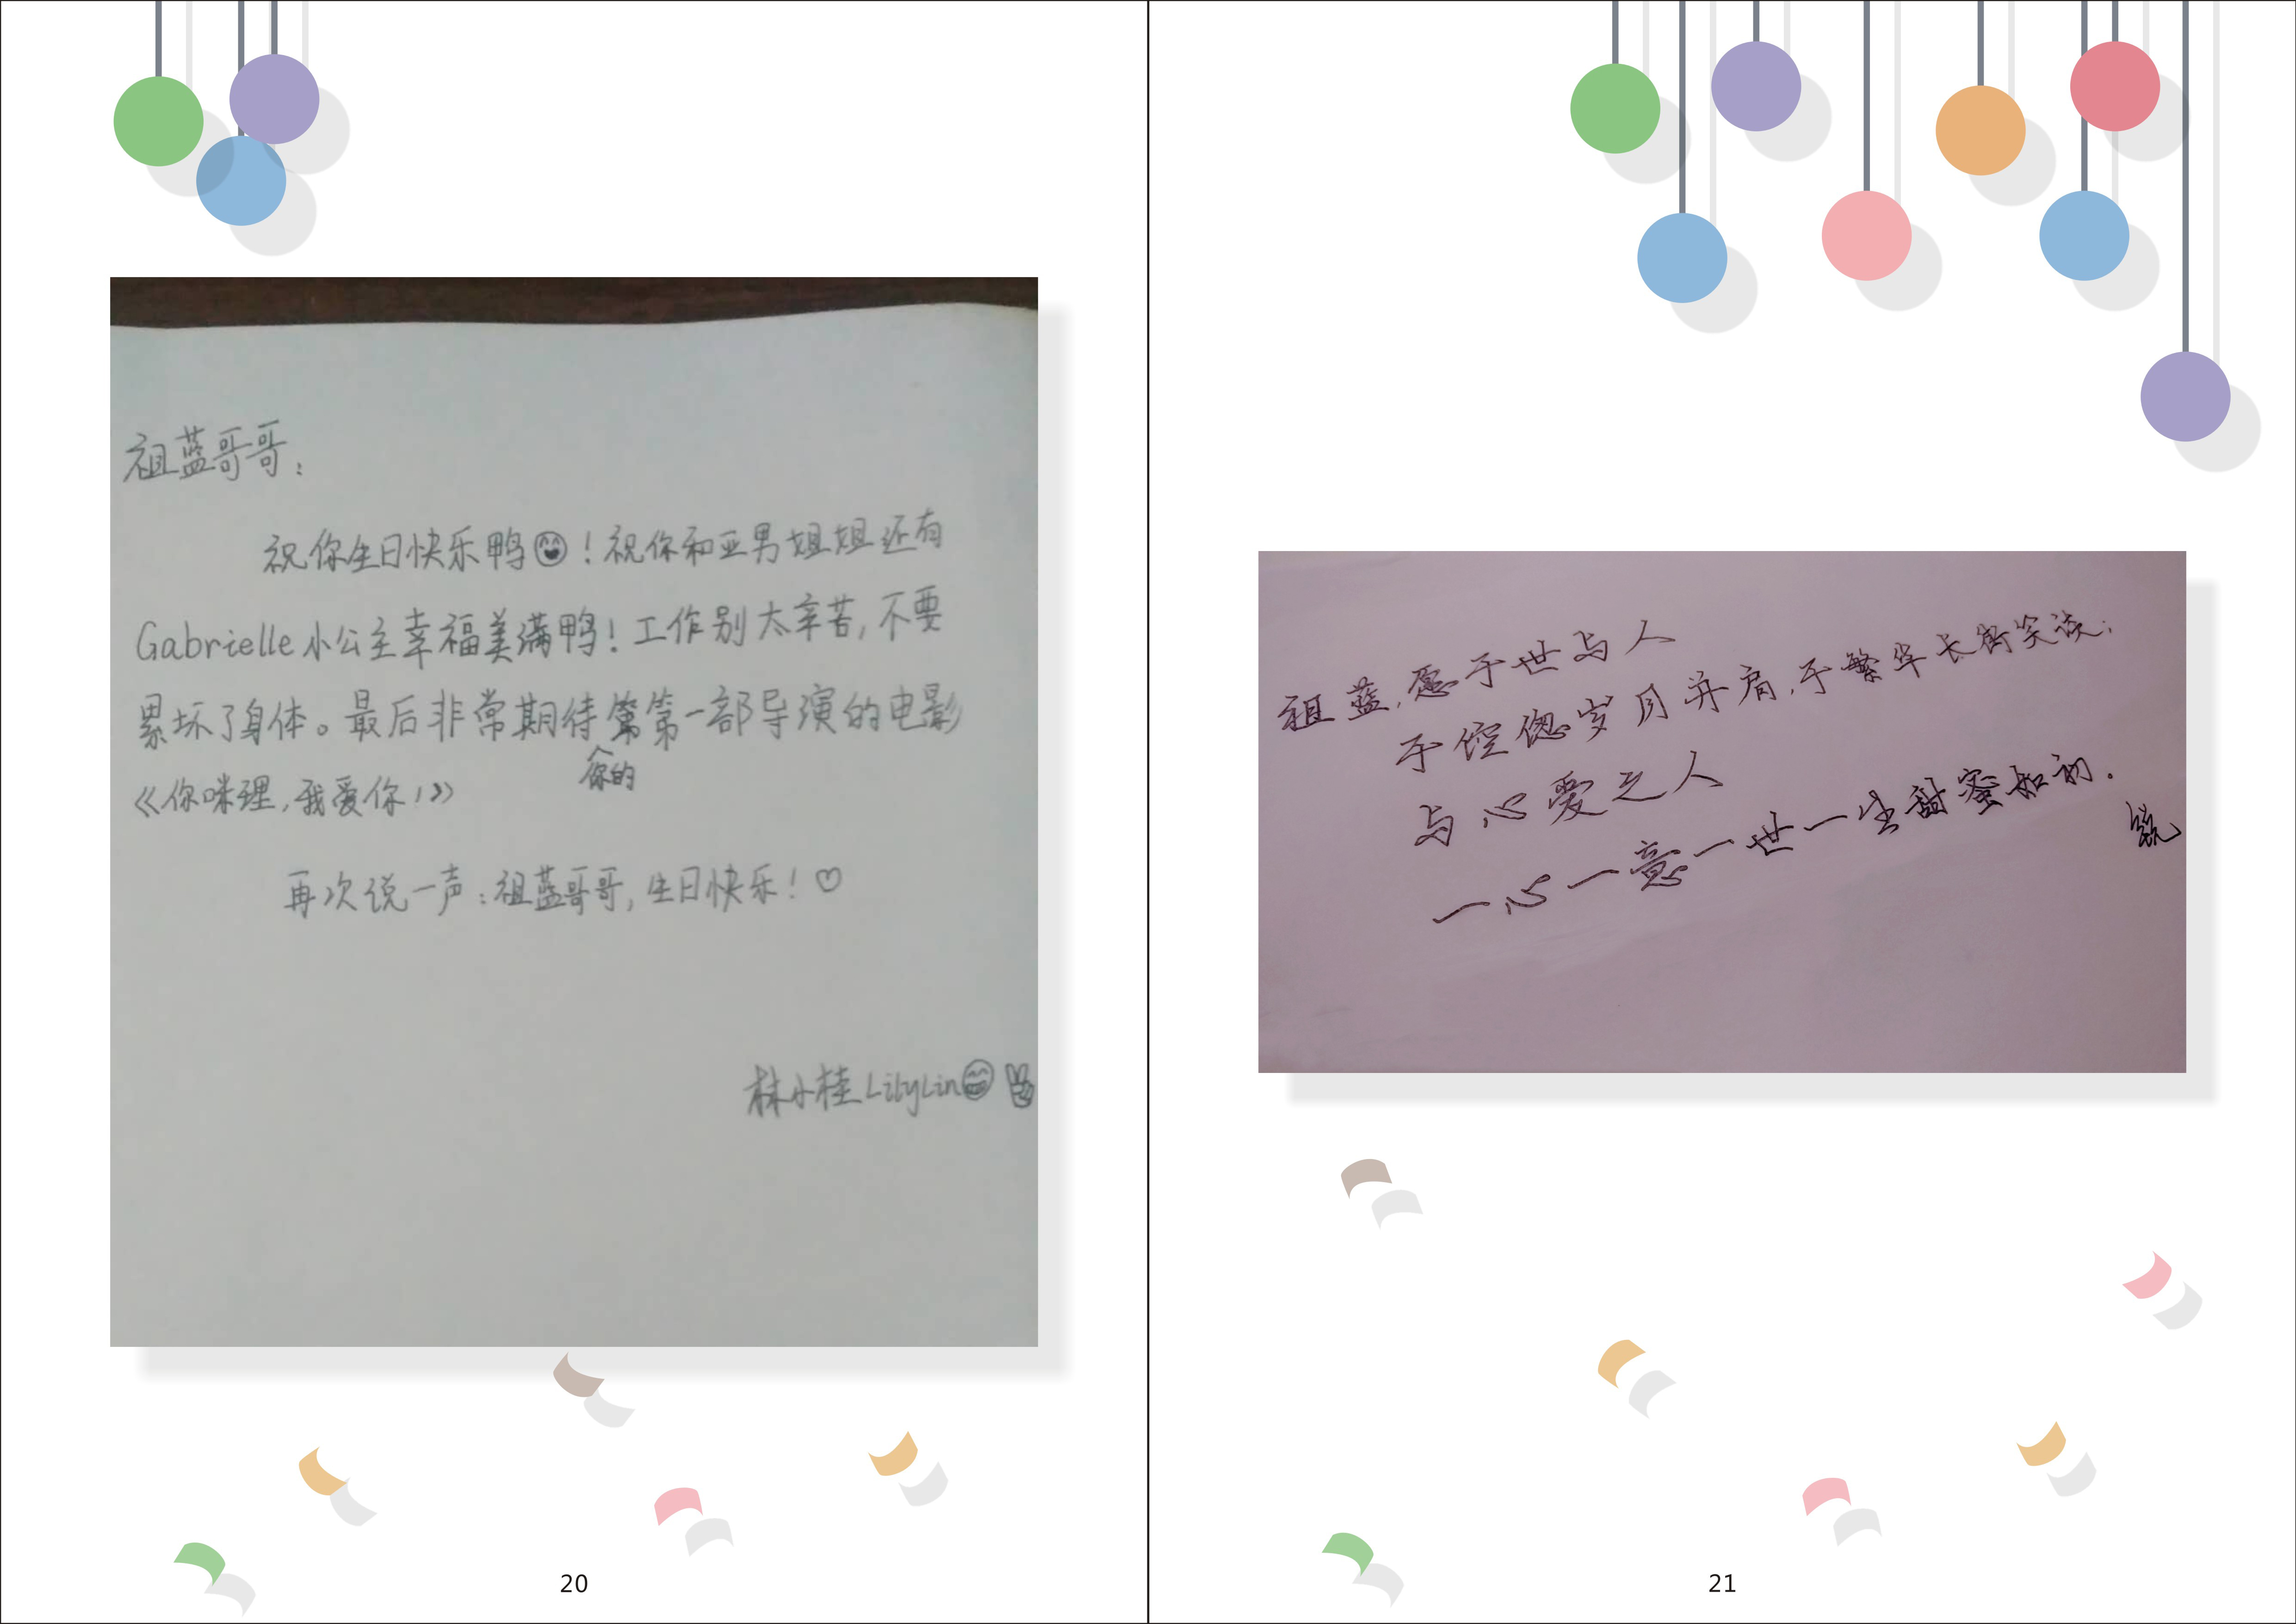 祖蓝哥哥：
祝你生日快乐鸭！祝你和亚男姐姐还有
Gabrielle小公主幸福美满鸭！工作别太辛苦,不要
累坏了身体。最后非常期待第第一部导演的电影
你的
《你咪理,我爱你!》
再次说一声：祖蓝哥哥,生日快乐！♡
林小桂LilyLin
20
祖蓝,愿于世与人
于倥偬岁月并肩,于繁华长街笑谈；
与心爱之人
一心一意一世一生甜蜜如初.
21